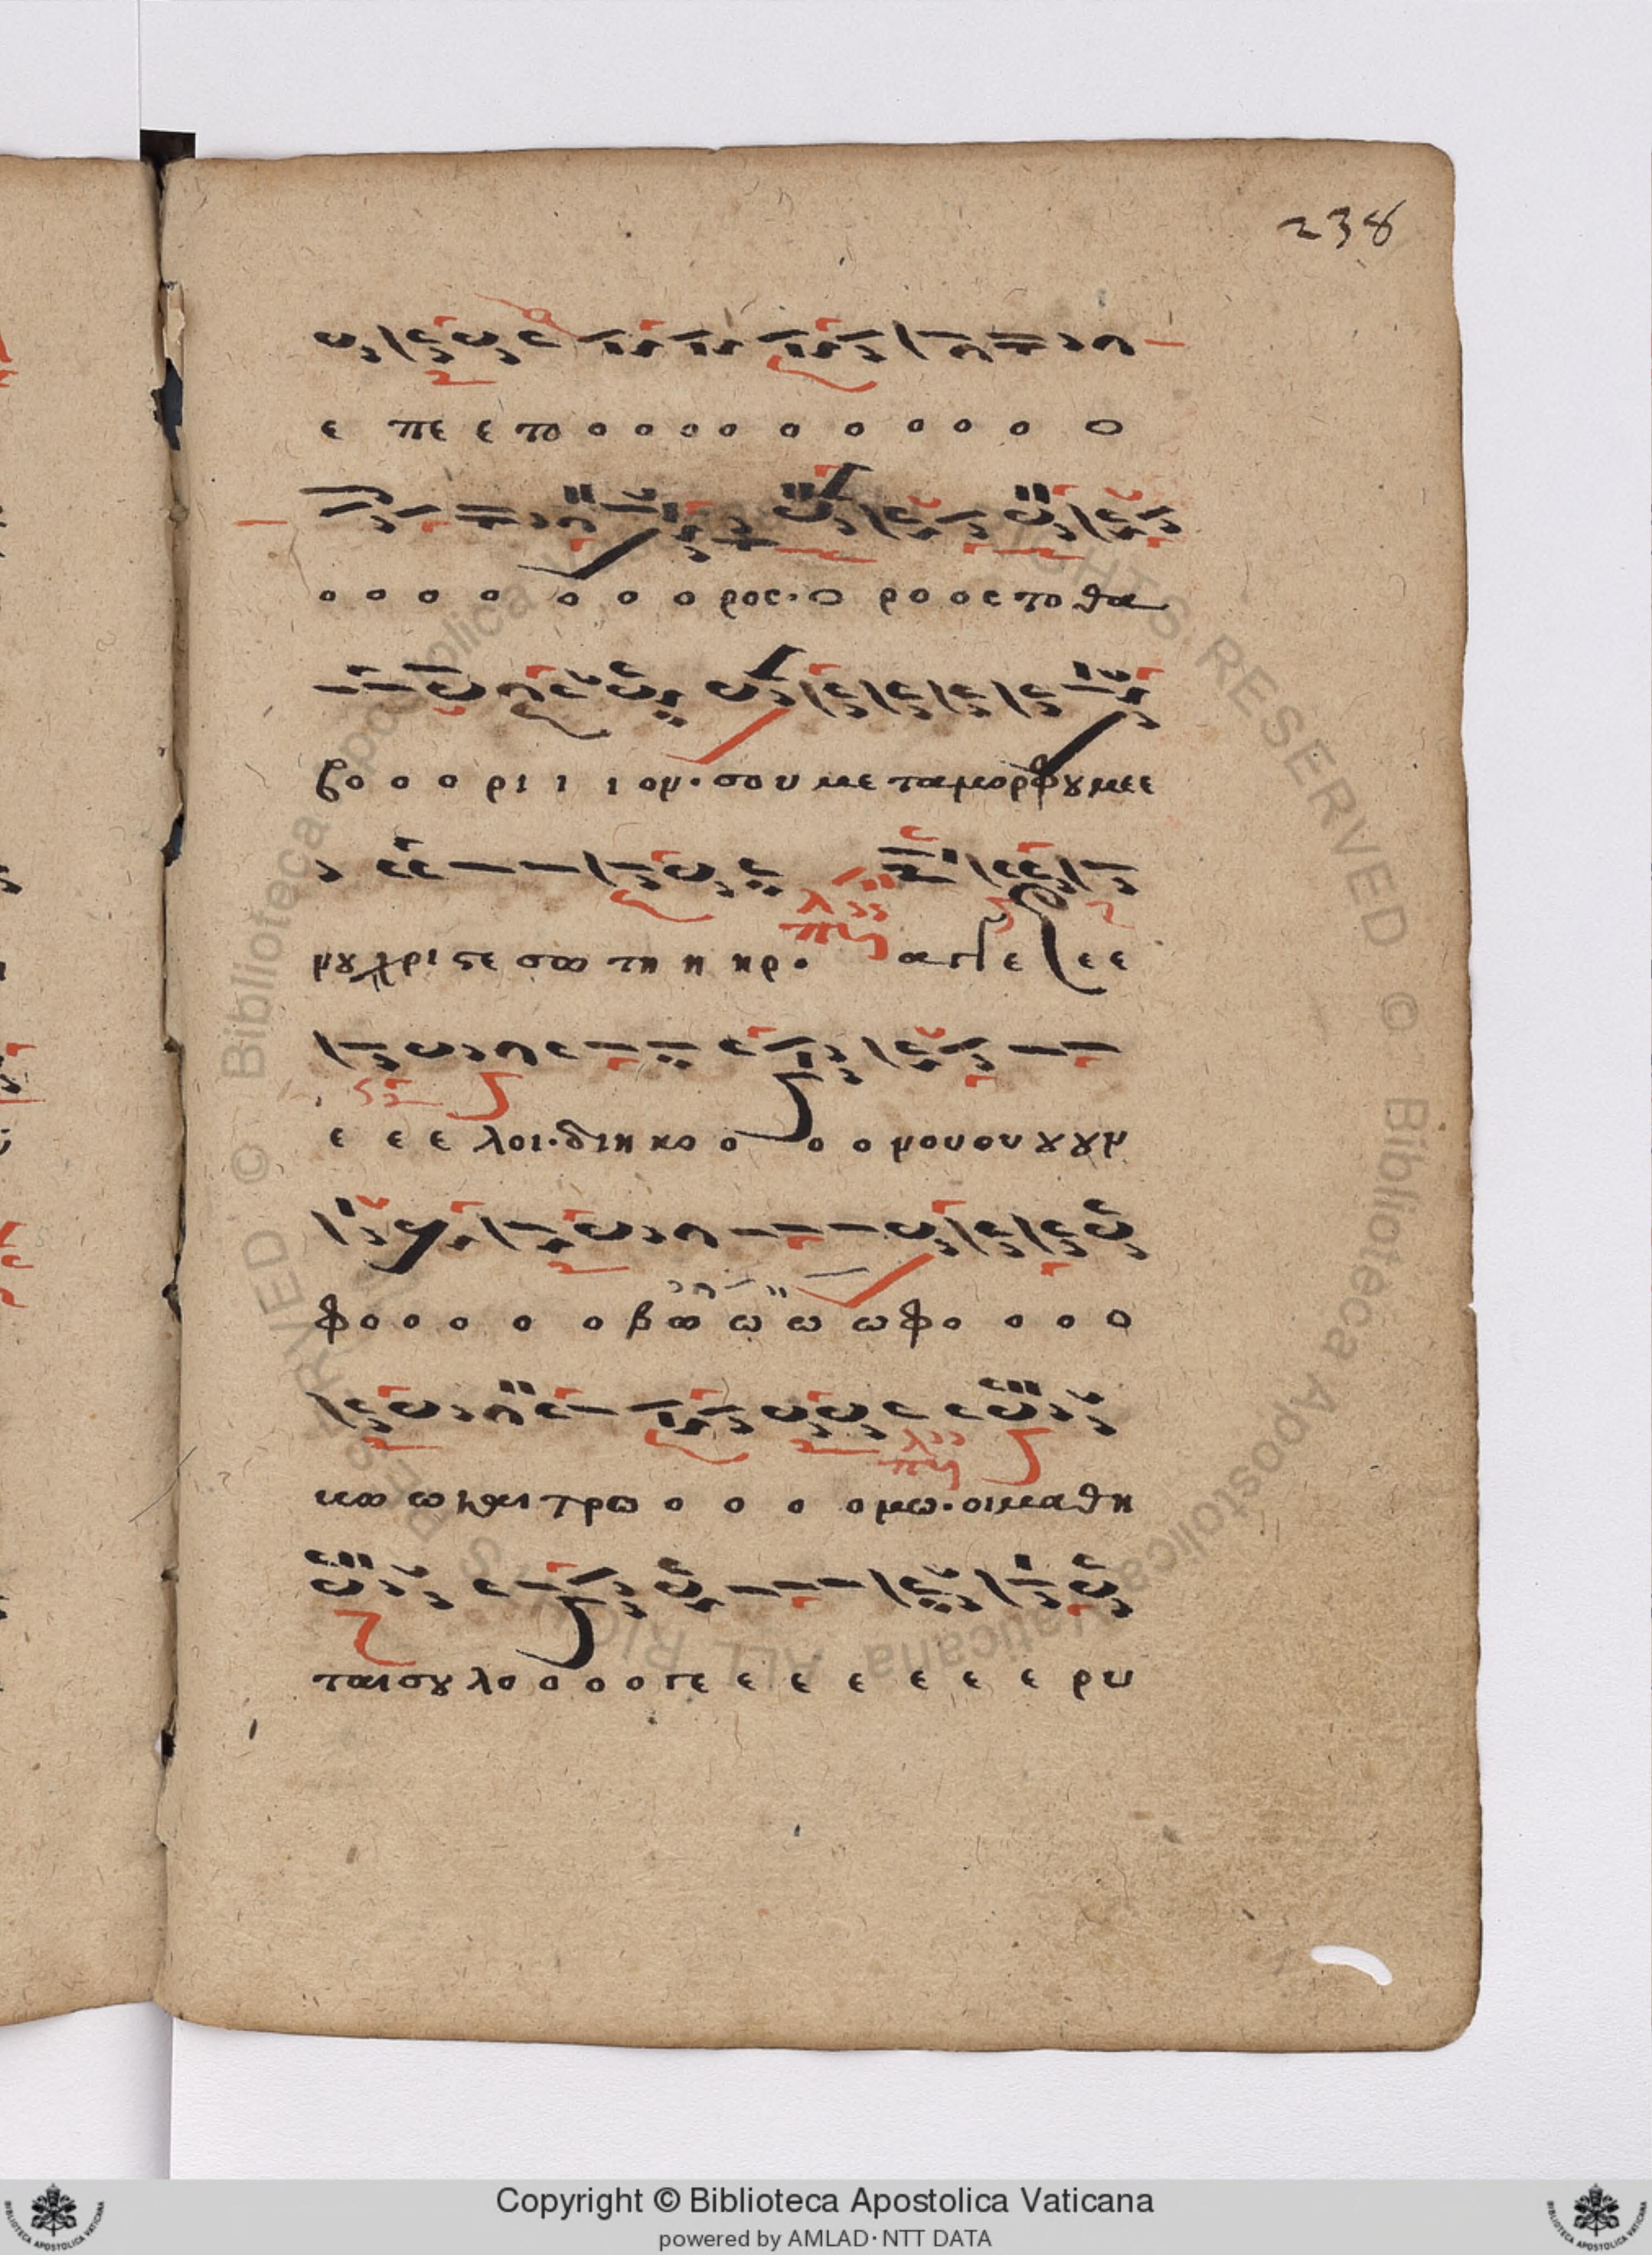 238
ε πε ε το ο ο ο ο ο ο ο ο ο ο
ο ο ο ο ο ο ο ρος· ο ρ ο ο ς το θα
βο ο ο ρι ι ι ον· σου με ταμορφȣμεε
νȣ χριϛε σω τη η ηρ· αγγε λε ε
ε ε ε λοι· διη κο ο ο ο μουου ȣȣν
φο ο ο ο ο ο βω ω ω ω φο ο ο ο
κω ω και τρω ο ο ο ο μω· οι μαθη
ται σȣ λο ο ο ο πε ε ε ε ε ε ε ρυ
© Biblioteca Apostolica Vaticana ALL RIGHTS RESERVED
Copyright © Biblioteca Apostolica Vaticana
powered by AMLAD·NTT DATA